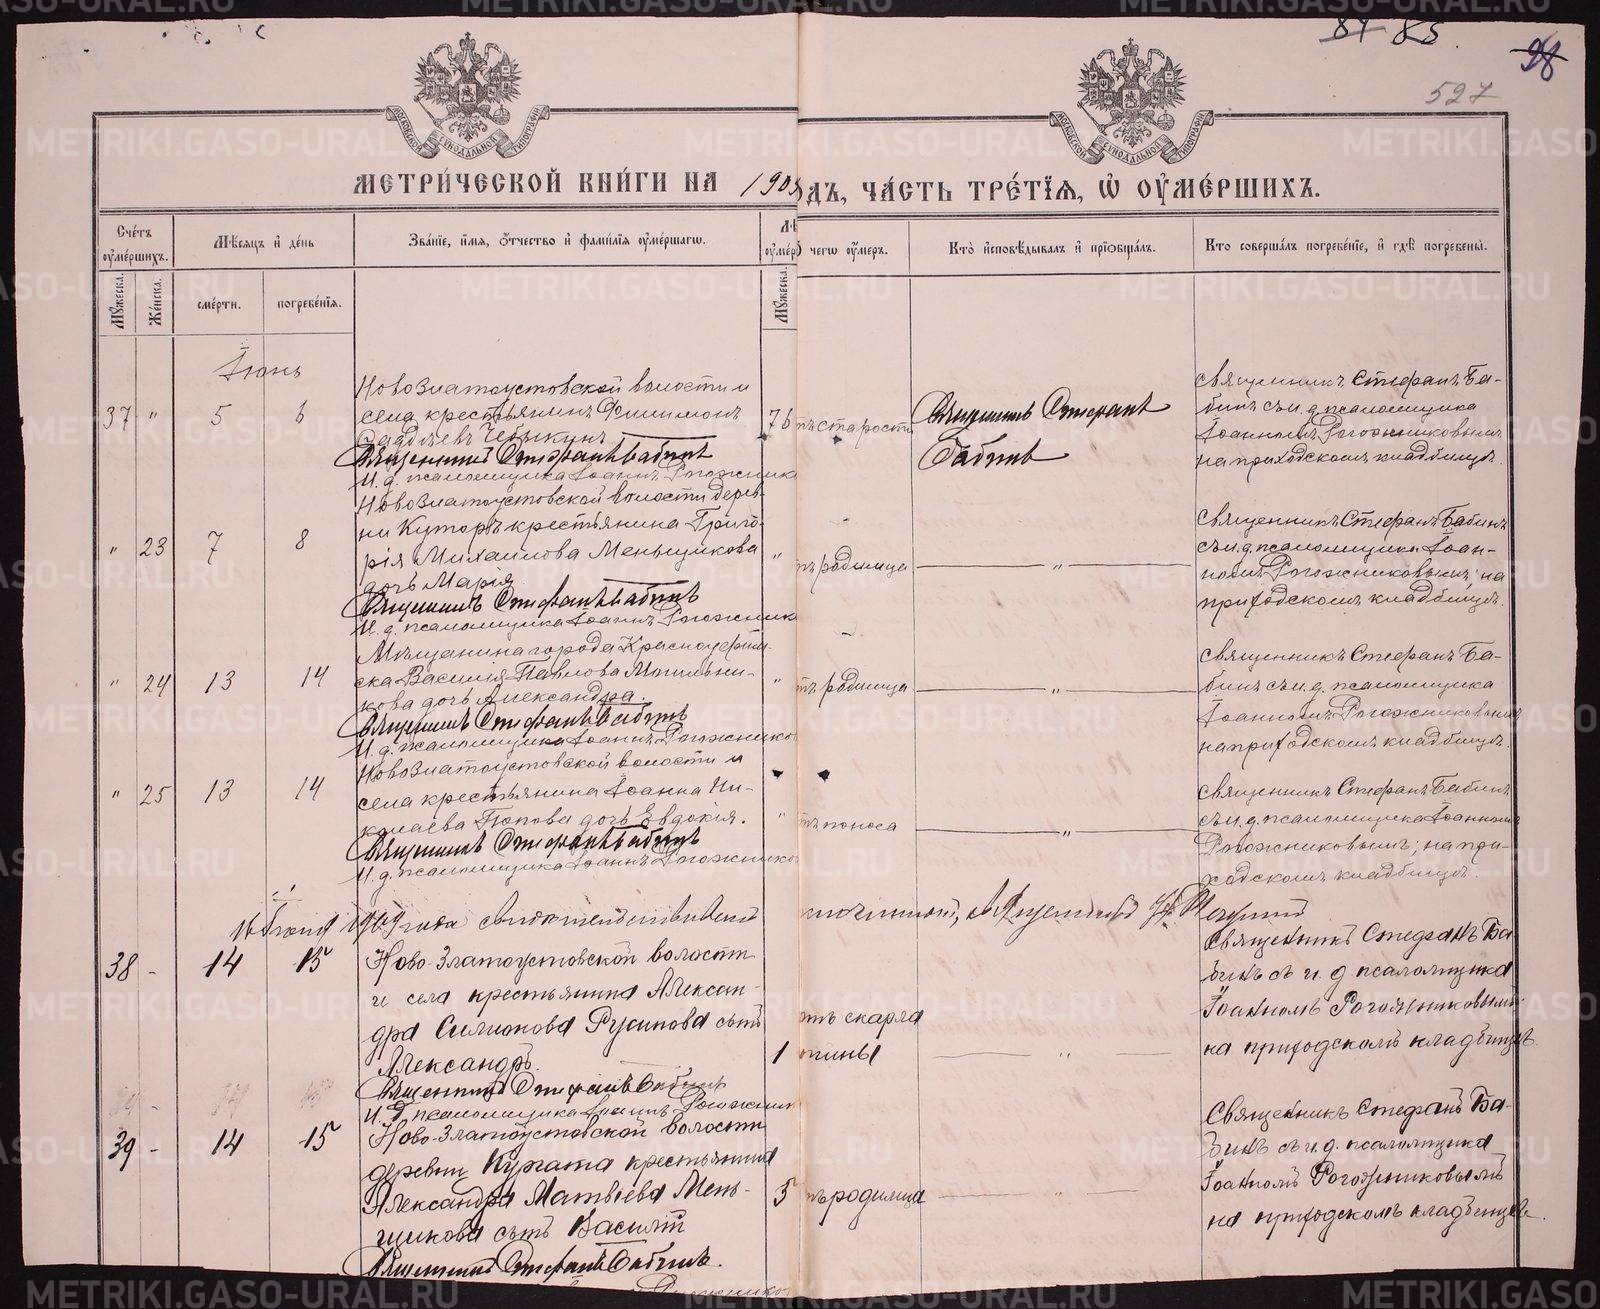 84 85.
98
527
МОСКОВСКОЙ СѴНОДАЛЬНОЙ ТИПОГРАФИИ
МОСКОВСКОЙ СѴНОДАЛЬНОЙ ТИПОГРАФИИ
МЕТРИ́ЧЕСКОЙ КНИ́ГИ НА 1909
ДЪ, ЧА́СТЬ ТРЕ́ТІЯ, Ѡ ОУМЕ́РШИХЪ.
Сче́тъ оуме́ршихъ.
Мꙋжеска.
Же́нска.
Мѣсяцъ и де́нь
сме́рти.
погребе́нія.
Зва́ніе, и́мя, о́тчество и фами́лія оуме́ршаго.
Лѣ
оуме́р
Мꙋжеска.
чегѡ оу́меръ.
Кто̀ исповѣ́дывалъ и пріобща́лъ.
Кто соверша́лъ погребе́ніе, и гдѣ̀ погребены̀.
Іюнь
37 " 5 6
Новозлатоустовской волости и
села крестьянинъ Филимонъ
Чебыкинъ
Священникъ Стефанъ Бабинъ
И. д. псаломщика Іоаннъ Рогожник
76
старости
Священникъ Стефанъ
Бабинъ
Священникъ Стефанъ Ба-
бинъ съ и. д. псаломщика
Іоанномъ Рогожниковымъ
на приходскомъ кладбищѣ.
" 23 7 8
Новозлатоустовской волости дерев-
ни крестьянина Григо-
рія Михаилова Меньщикова
дочь Марія
Священникъ Стефанъ Бабинъ
И. д. псаломщика Іоаннъ Рогожник
"
родимца
"
Священникъ Стефанъ Бабинъ
съ и. д. псаломщика Іоан-
номъ Рогожниковымъ; на
приходскомъ кладбищѣ.
" 24 13 14
Мѣщанина города Красноуфим-
ска Василія Павлова Мыльни-
кова дочь Александра.
Священникъ Стефанъ Бабинъ
И. д. псаломщика Іоаннъ Рогожников
"
родимца
"
Священникъ Стефанъ Ба-
бинъ съ и. д. псаломщика
Іоанномъ Рогожниковымъ
на приходскомъ кладбищѣ.
" 25 13 14
Новозлатоустовской волости и
села крестьянина Іоанна Ни-
колаева Попова дочь Евдокія.
Священникъ Стефанъ Бабинъ
И. д. псаломщика Іоаннъ Рогожников
"
поноса
"
Священникъ Стефанъ Бабинъ
съ и. д. псаломщика Іоанномъ
Рогожниковымъ; на при-
ходскомъ кладбищѣ.
16 Іюня 1909 года
38 - 14 15
Ново-Златоустовской волости
и села крестьянина Алексан-
дра Симонова Русинова сынъ
Александръ.
Священникъ Стефанъ Бабинъ
И. д. псаломщика Іоаннъ Рогожник
1
отъ скарла
тины
"
Священникъ Стефанъ Ба-
бинъ съ и. д. псаломщика
Іоанномъ Рогожниковымъ
на приходскомъ кладбищѣ.
39 - 14 15
Ново-Златоустовской волости
деревни Кургата крестьянина
Александра Матвѣева Мень-
щикова сынъ Василій
Священникъ Стефанъ Бабинъ.
5
родимца
"
Священникъ Стефанъ Ба-
бинъ съ и. д. псаломщика
Іоанномъ Рогожниковымъ
на приходскомъ кладбищѣ.
METRIKI.GASO-URAL.RU